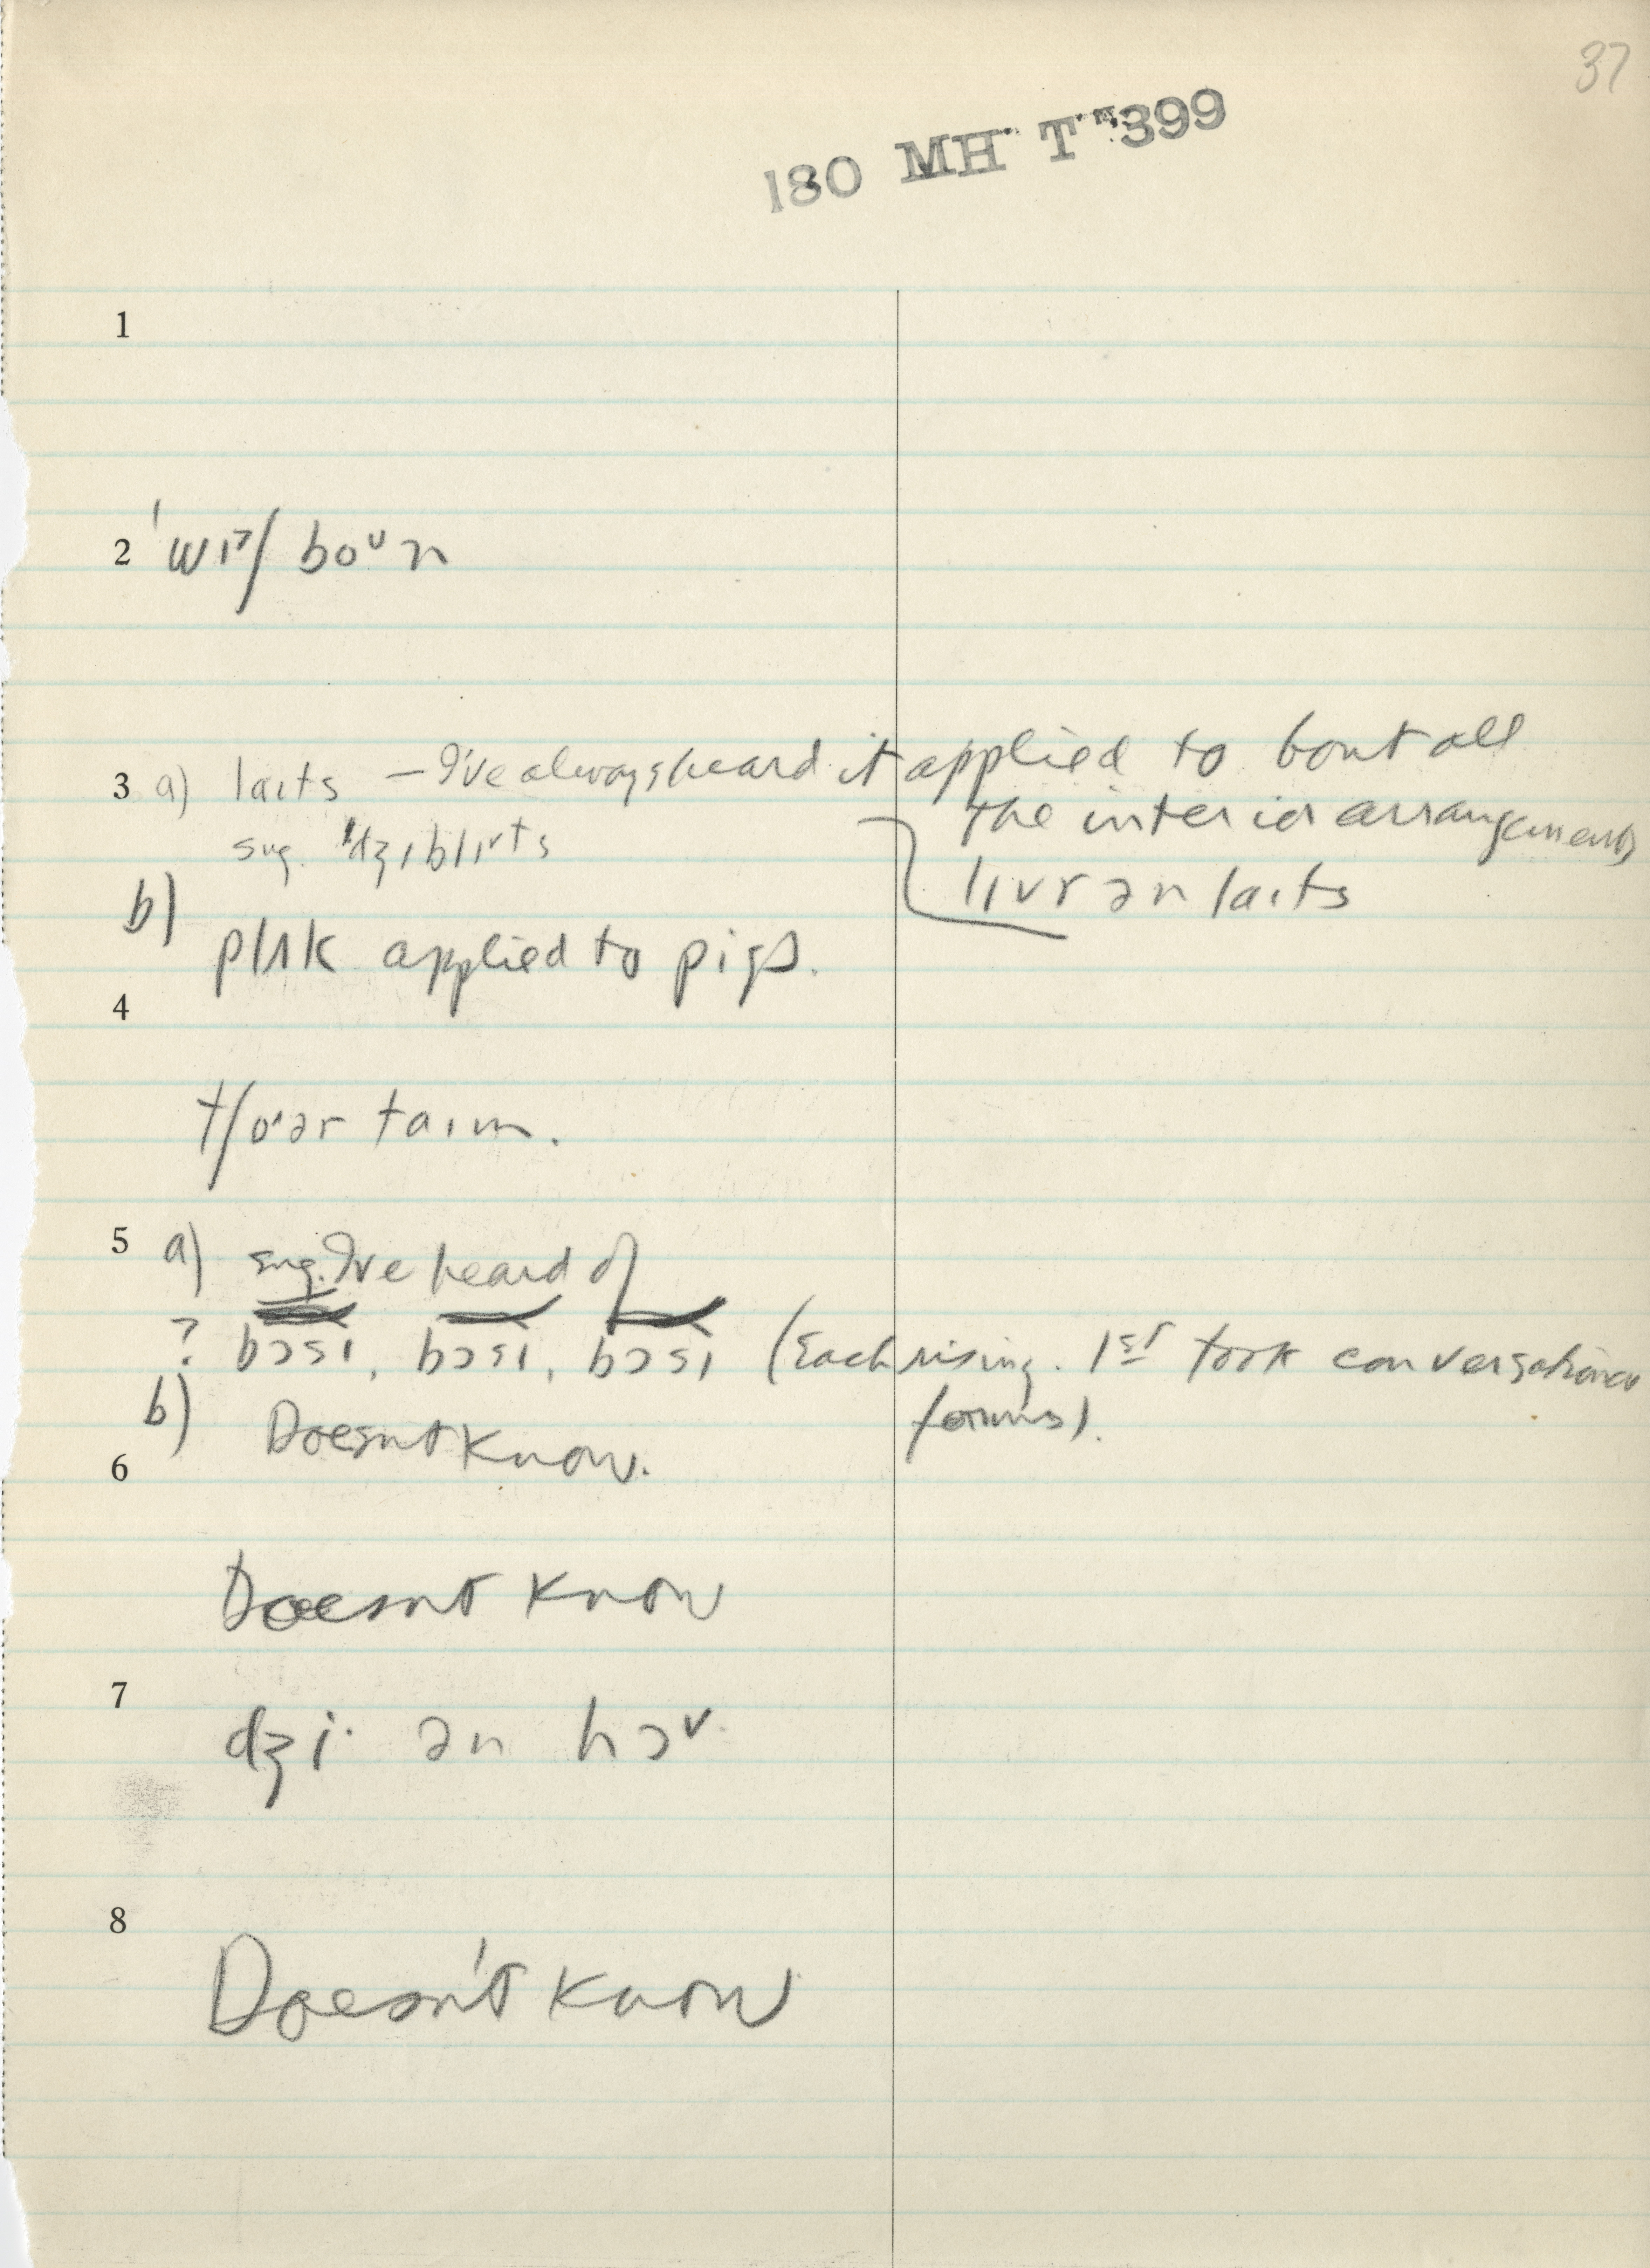 37
180 MH T 399
1
2 ˈwɪʃ boᵘn
3 a) laɪts – I've always heard it applied to bout all
the interior arrangements
sug. ˈdʒɪblɪts
lɪvr ən laɪts
b) plʌk applied to pigs.
4
tʃoər taɪm.
5 a) sug. I've heard of
? bɔsɪ, bɔsɪ, bɔsɪ (Each rising. 1st took conversational
forms).
b) Doesnt know.
6
Doesnt know
7
dʒi· ən hɔ
8
Doesn't know